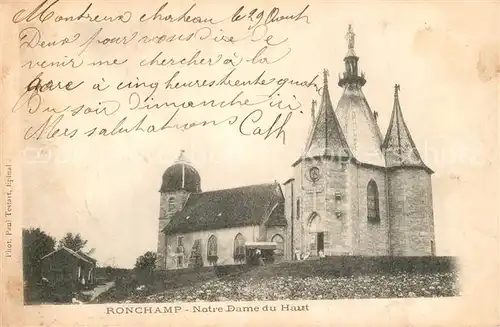 Montreux chateau le 29 Aout
Deux pour vous dire de
venir me chercher à la
gare à cinq heures trente quatre
Du soir dimanche ici
Mes salutations Cath
Phot. Paul Testart, Epinal
RONCHAMP - Notre Dame du Haut